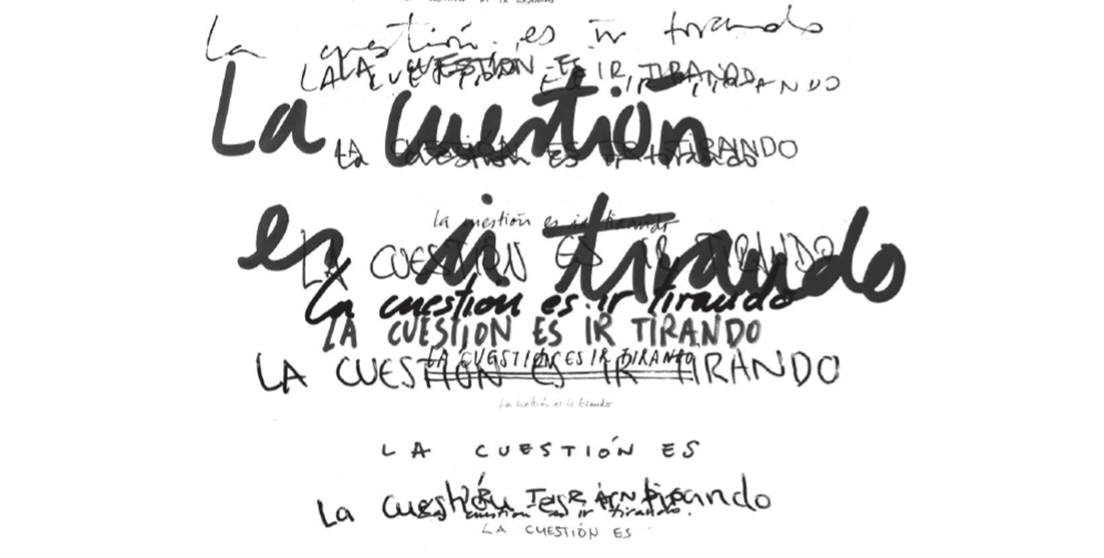 La cuestión es ir tirando
LA CUESTIÓN ES IR TIRANDO
LA CUESTIÓN ES IR TIRANDO
La cuestión
LA CUESTIÓN ES IR TIRANDO
La cuestión es ir tirando
La cuestión es ir tirando
es ir tirando
LA CUESTIÓN ES IR TIRANDO
La cuestion es ir tirando
LA CUESTIÓN ES IR TIRANDO
LA CUESTIÓN ES IR TIRANDO
LA CUESTIÓN ES IR TIRANDO
La cuestión es ir tirando
LA CUESTIÓN ES
IR TIRANDO
La cuestión es ir tirando
La cuestion es ir tirando.
LA CUESTIÓN ES